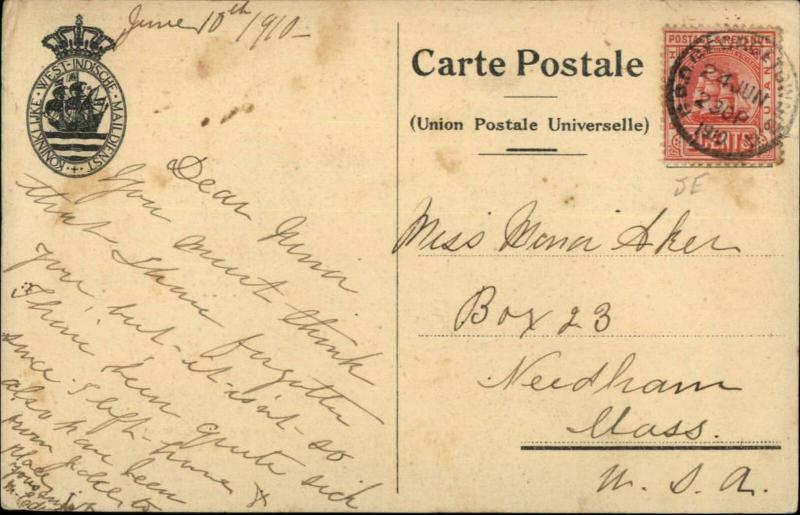 June 10th 1910-
KONINKLIJKE · WEST-INDISCHE · MAILDIENST
Dear Nina
You must think
that I have forgotten
you, but it isn't so
I have been quite sick
since I left home &
also have been
from place to
place
Carte Postale
(Union Postale Universelle)
POSTAGE & REVENUE
GEORGETOWN
24 JUN
230P
1910
CENTS
JE
Miss Nona Aker
Box 23
Needham
Mass.
U. S. A.